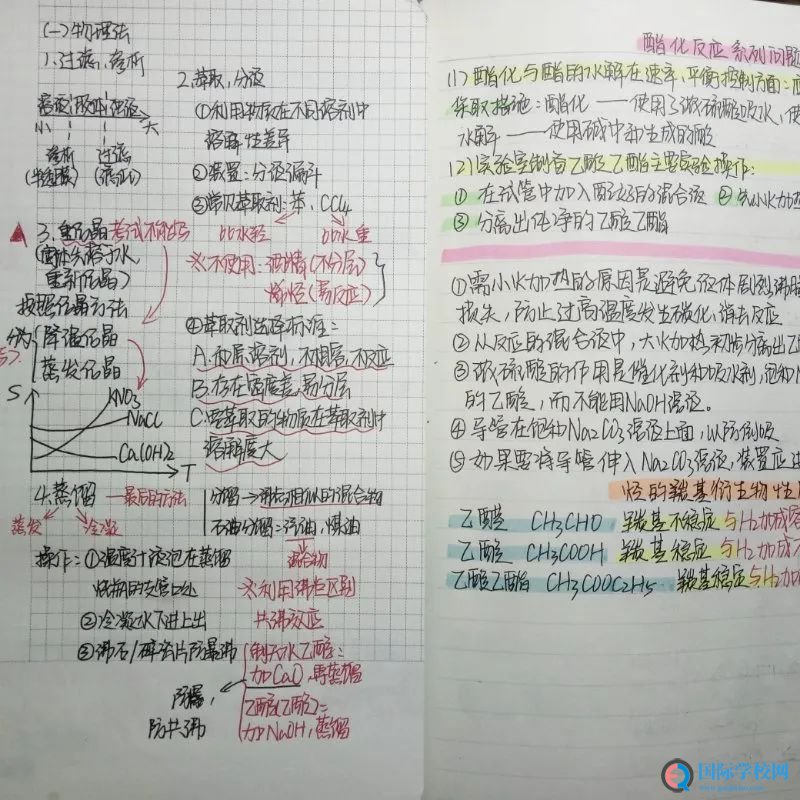 (一)物理法
1、过滤、渗析
溶液 胶体 浊液
小 大
渗析 过滤
(半透膜) (滤纸)
▲ 3. 重结晶 考试不配吗
(固体先溶于水,
重新结晶)
按照结晶方法
分为 降温结晶
蒸发结晶
S
KNO3
NaCl
Ca(OH)2
T
4.蒸馏 — 最后的方法
蒸发 冷凝
操作:①温度计液泡在蒸馏
烧瓶的支管口处
②冷凝水下进上出
③沸石/碎瓷片防暴沸
防暴,
防共沸
2.萃取、分液
①利用物质在不同溶剂中
溶解性差异
②装置:分液漏斗
③常见萃取剂:苯、CCl4
比水轻 比水重
※不使用:酒精(不分层)
烯烃(易反应)
④萃取剂选择标准:
A.和原溶剂,不相溶,不反应
B.存在密度差,易分层
C.要萃取的物质在萃取剂中
溶解度大
分馏→沸点相似的混合物
石油分馏:汽油,煤油
混合物
※利用沸点区别
共沸效应
制无水乙醇:
加CaO,再蒸馏
乙醇(乙酸)=
加NaOH,蒸馏
酯化反应系列问题
(1)酯化与酯的水解在速率、平衡控制方面:
采取措施:酯化——使用浓硫酸吸水,使
水解——使用碱中和生成的酸
(2)实验室制备乙酸乙酯主要实验操作:
①在试管中加入配好的混合液 ②先小火加热
③分离出纯净的乙酸乙酯
①需小火加热的原因是避免液体剧烈沸腾
损失,防止过高温度发生碳化,消去反应
②从反应的混合液中,大火加热初步分离出乙
③浓硫酸的作用是催化剂和吸水剂,饱和N
的乙酸,而不能用NaOH溶液。
④导管在饱和Na2CO3溶液上面,以防倒吸
⑤如果要将导管伸入Na2CO3溶液,装置应
烃的羰基衍生物性质
乙醛 CH3CHO 羰基不稳定 与H2加成
乙酸 CH3COOH 羰基稳定 与H2加成不
乙酸乙酯 CH3COOC2H5 羰基稳定 与H2加
国际学校网